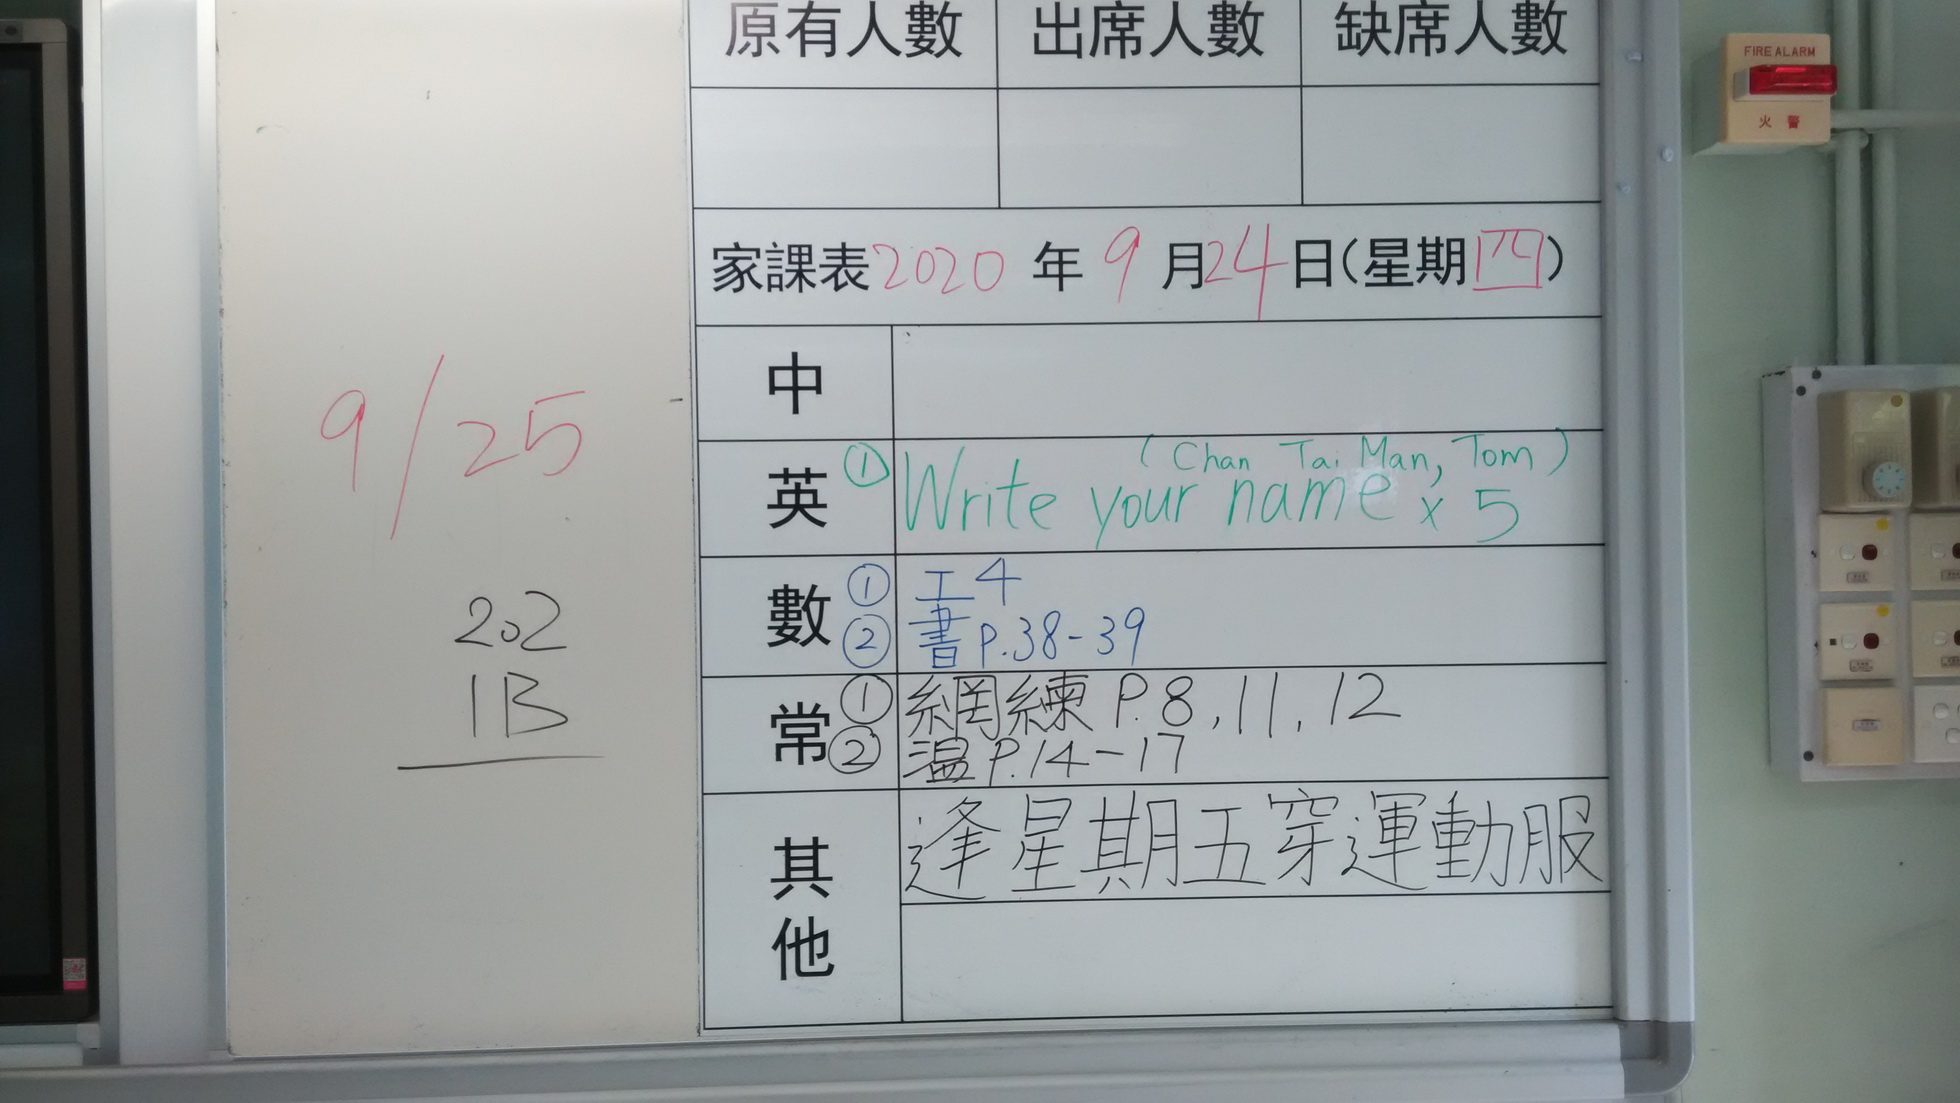 原有人數 出席人數 缺席人數
家課表2020年9月24日(星期四)
中
英 ① Write your name x 5
(Chan Tai Man, Tom)
數 ① 工4
② 書P.38-39
常 ① 網練P.8,11,12
② 溫P.14-17
其他 逢星期五穿運動服
9/25
202
1B
FIRE ALARM
火警